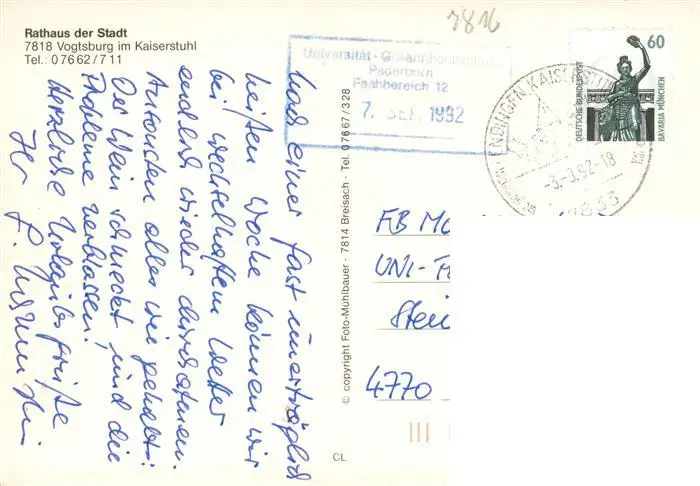 7816
Rathaus der Stadt
7818 Vogtsburg im Kaiserstuhl
Tel.: 0 76 62 / 7 11
Universität - Gesamthochschule
Paderborn
Fachbereich 12
7. SEP. 1992
60
DEUTSCHE BUNDESPOST
BAVARIA MÜNCHEN
ENDINGEN, KAISERSTUHL
-3.-9.92-18
Nach einer fast unerträglich
heißen Woche können wir
bei wechselhaftem Wetter
endlich wieder durchatmen.
Ansonsten alles wie gehabt:
Der Wein schmeckt und die
Probleme verblassen.
Herzliche Urlaubsgrüße
Ihr
© copyright Foto-Mühlbauer - 7814 Breisach - Tel. 0 76 67 / 328
FB
UNI-
Stein
4770
CL